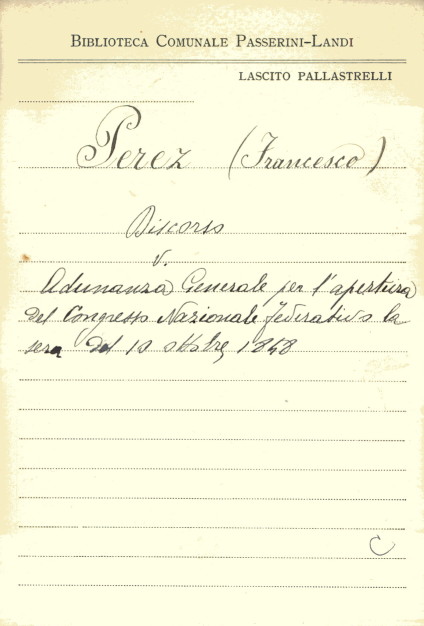 BIBLIOTECA COMUNALE PASSERINI-LANDI
LASCITO PALLASTRELLI
Perez (Francesco)
Discorso
v.
Adunanza Generale per l'apertura
del Congresso Nazionale federativo la
sera del 10 ottobre 1848
C